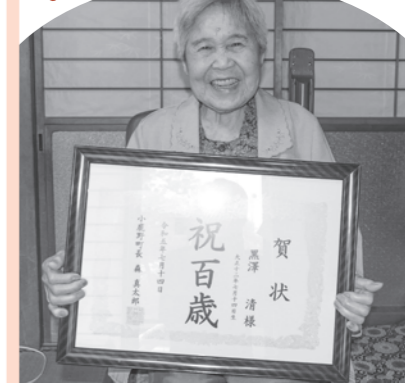 賀状
黒澤 清様
大正十二年七月十四日生
祝百歳
令和五年七月十四日
小鹿野町長 森 真太郎